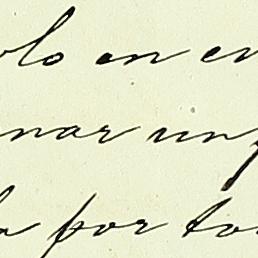 olo en en
nar un
a por to